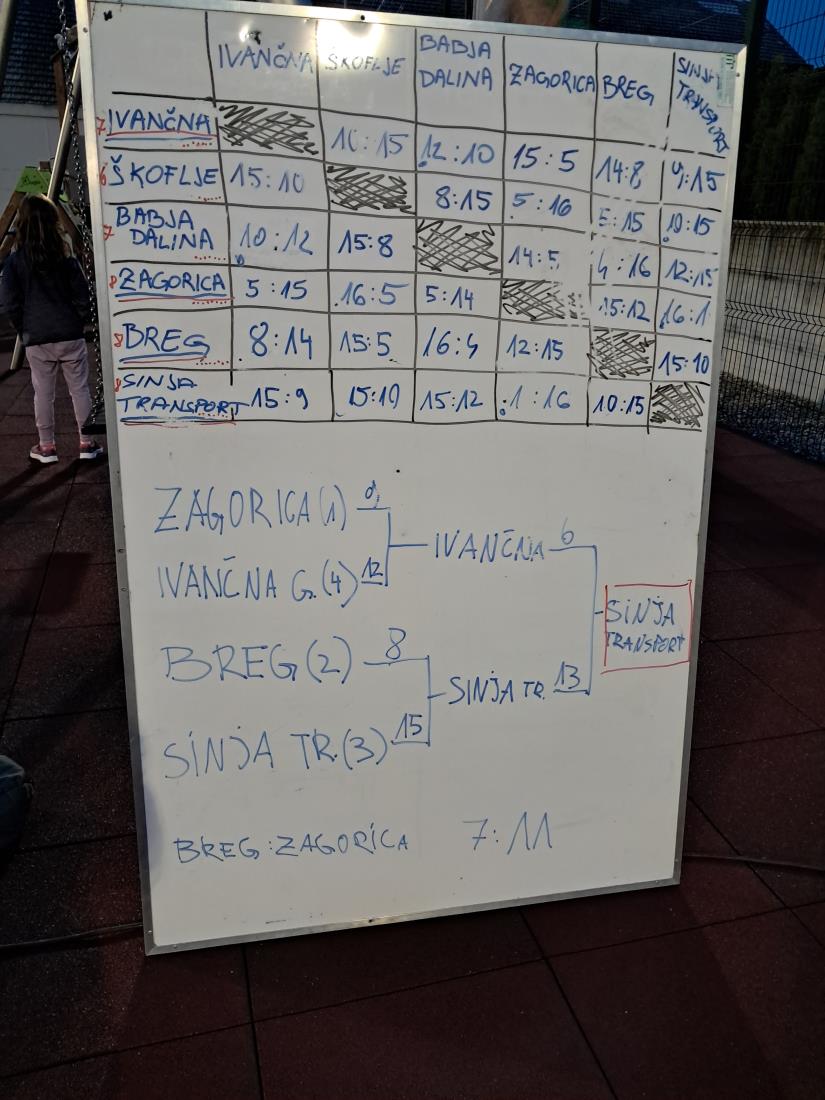 IVANČNA ŠKOFLJE BABJA DALINA ZAGORICA BREG SINJA TRANSPORT
7 IVANČNA 10:15 12:10 15:5 14:8 9:15
6 ŠKOFLJE 15:10 8:15 5:16 5:15 10:15
7 BABJA DALINA 10:12 15:8 14:5 4:16 12:15
8 ZAGORICA 5:15 16:5 5:14 15:12 16:1
8 BREG 8:14 15:5 16:4 12:15 15:10
8 SINJA TRANSPORT 15:9 15:10 15:12 1:16 10:15
ZAGORICA (1)
IVANČNA 6
IVANČNA G. (4) 12
SINJA
TRANSPORT
BREG (2) 8
SINJA TR. 13
SINJA TR. (3) 15
BREG : ZAGORICA 7:11